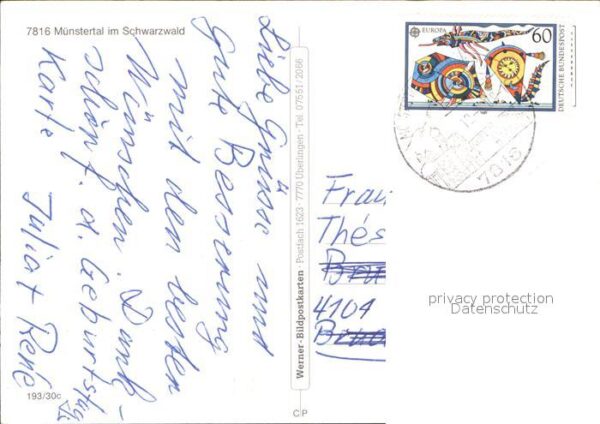 7816 Münstertal im Schwarzwald
Liebe Grüsse und
Gute Besserung
mit den besten
Wünschen. Dank-
schön f. d. Geburtstags
Karte
Julia + René
193/30c
Werner-Bildpostkarten · Postfach 1623 · 7770 Überlingen · Tel. 07551/2066
C P
EUROPA
60
DEUTSCHE BUNDESPOST
7816
Frau
Thés
Bru
4104
privacy protection
Datenschutz